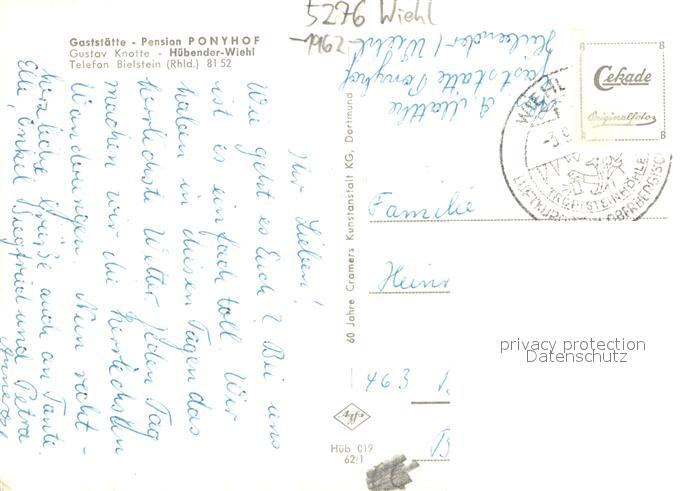 5276 Wiehl
-1962-
Gaststätte - Pension PONYHOF
Gustav Knotte - Hübender-Wiehl
Telefon Bielstein (Rhld.) 81 52
Ihr Lieben!
Wie geht es Euch? Bei uns
ist es einfach toll. Wir
haben in diesen Tagen das
herrlichste Wetter. Jeden Tag
machen wir die herrlichsten
Wanderungen. Nun recht-
herzliche Grüße auch an Tante
Elli, Onkel Siegfried und Petra
60 Jahre Cramers Kunstanstalt KG, Dortmund
Agfa
Hüb 019
62/1
Gaststätte Ponyhof
Hübender / Wiehl
Cekade
Originalfoto
WIEHL
TROPFSTEINHÖHLE
Familie
Heinr
463
privacy protection
Datenschutz